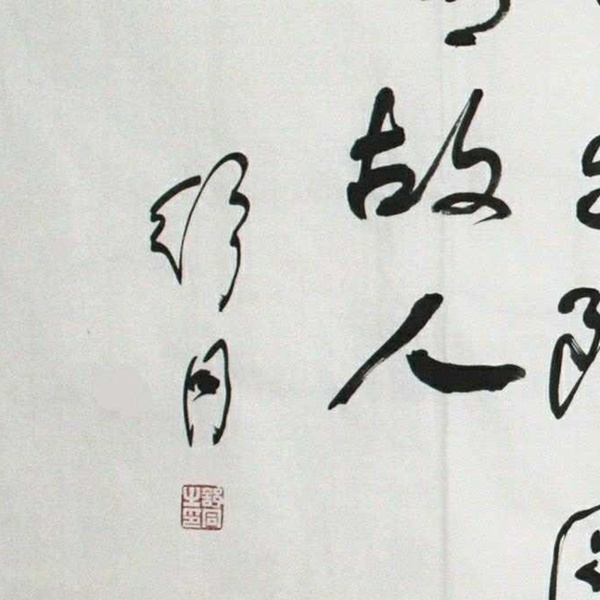 故人
舒同
舒同之印